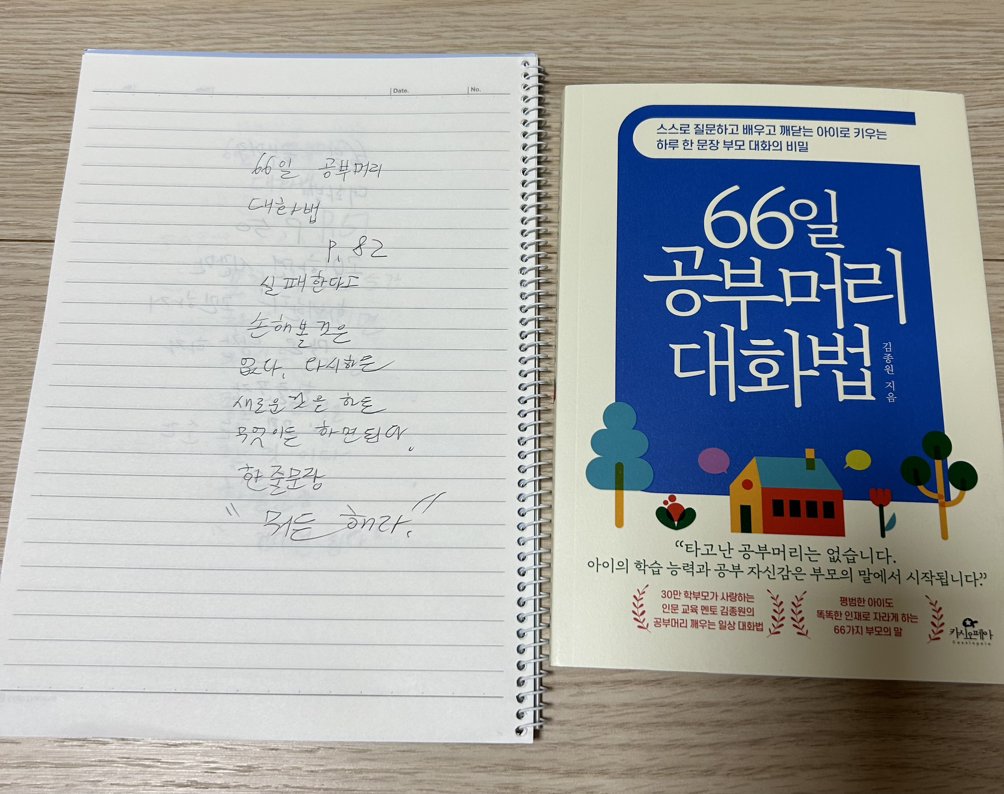 Date.
No.
66일 공부머리
대화법
P. 82
실패한다고
손해볼 것은
없다. 다시하든
새로운 것을 하든
무엇이든 하면 된다.
한 줄 문장
" 뭐든 해라."
스스로 질문하고 배우고 깨닫는 아이로 키우는
하루 한 문장 부모 대화의 비밀
66일
공부머리
대화법
김종원 지음
“타고난 공부머리는 없습니다.
아이의 학습 능력과 공부 자신감은 부모의 말에서 시작됩니다.”
30만 학부모가 사랑하는
인문 교육 멘토 김종원의
공부머리 깨우는 일상 대화법
평범한 아이도
똑똑한 인재로 자라게 하는
66가지 부모의 말
카시오페아
Cassiopeia